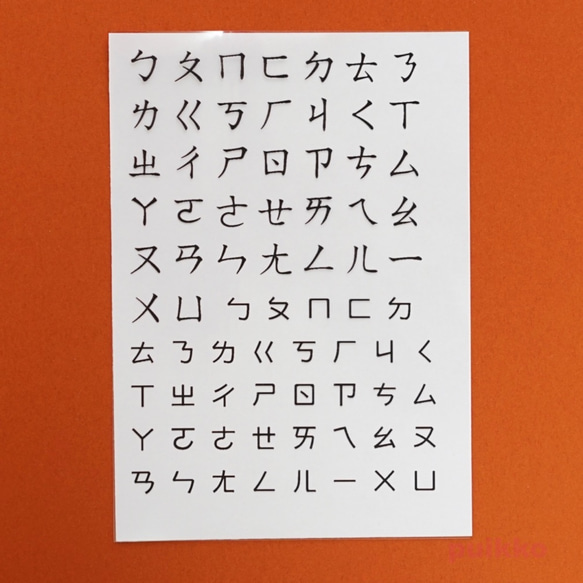 ㄅ ㄆ ㄇ ㄈ ㄉ ㄊ ㄋ
ㄌ ㄍ ㄎ ㄏ ㄐ ㄑ ㄒ
ㄓ ㄔ ㄕ ㄖ ㄗ ㄘ ㄙ
ㄚ ㄛ ㄜ ㄝ ㄞ ㄟ ㄠ
ㄡ ㄢ ㄣ ㄤ ㄥ ㄦ ㄧ
ㄨ ㄩ ㄅ ㄆ ㄇ ㄈ ㄉ
ㄊ ㄋ ㄌ ㄍ ㄎ ㄏ ㄐ ㄑ
ㄒ ㄓ ㄔ ㄕ ㄖ ㄗ ㄘ ㄙ
ㄚ ㄛ ㄜ ㄝ ㄞ ㄟ ㄠ ㄡ
ㄢ ㄣ ㄤ ㄥ ㄦ ㄧ ㄨ ㄩ